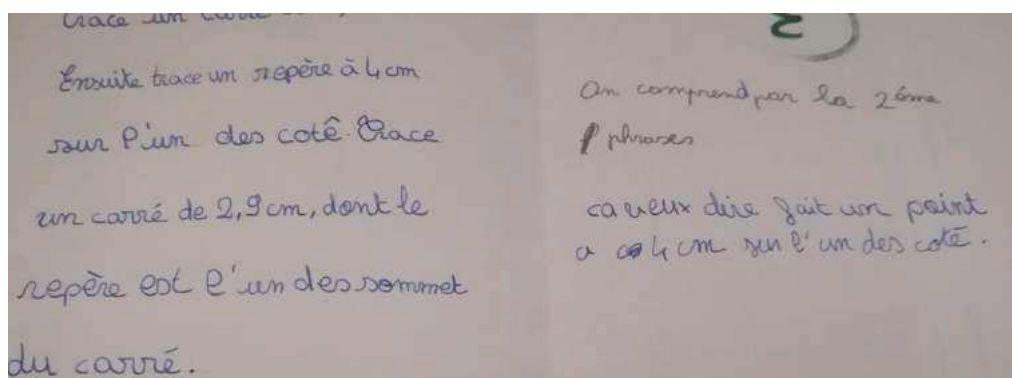 trace un carré
Ensuite trace un repère à 4 cm
sur l'un des coté. Trace
un carré de 2,9 cm, dont le
repère est l'un des sommet
du carré.
3
On comprend par la 2éme
phrases
ca veux dire fait un point
a 4 cm sur l'un des coté.